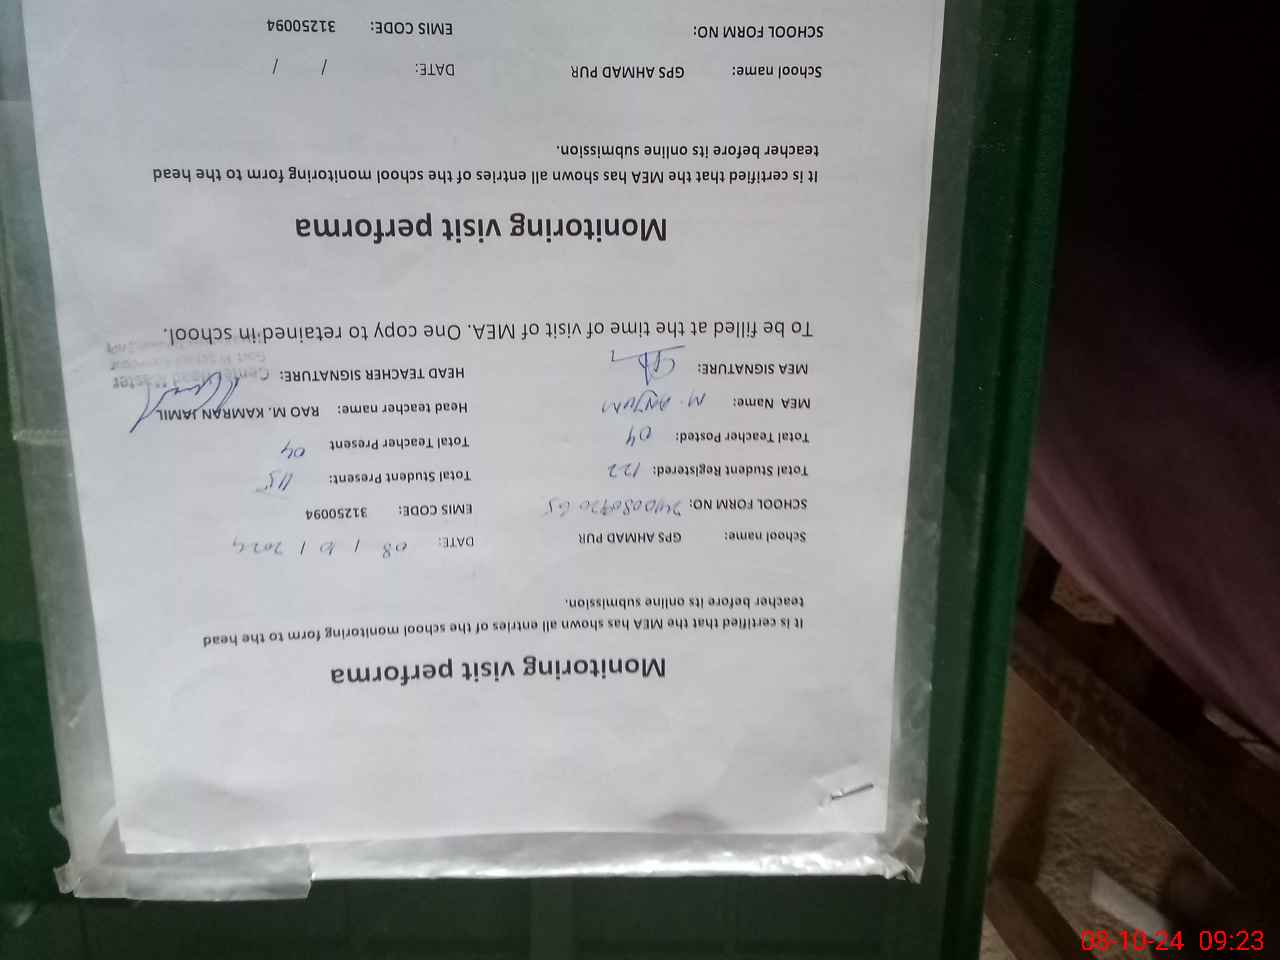 Monitoring visit performa
It is certified that the MEA has shown all entries of the school monitoring form to the head
teacher before its online submission.
School name: GPS AHMAD PUR DATE: 08 / 10 / 2024
SCHOOL FORM NO: EMIS CODE: 31250094
Total Student Registered: 122 Total Student Present: 115
Total Teacher Posted: 04 Total Teacher Present 04
MEA Name: M. ANJUM Head teacher name: RAO M. KAMRAN JAMIL
MEA SIGNATURE: HEAD TEACHER SIGNATURE:
To be filled at the time of visit of MEA. One copy to retained in school.
Monitoring visit performa
It is certified that the MEA has shown all entries of the school monitoring form to the head
teacher before its online submission.
School name: GPS AHMAD PUR DATE: / /
SCHOOL FORM NO: EMIS CODE: 31250094
08-10-24 09:23